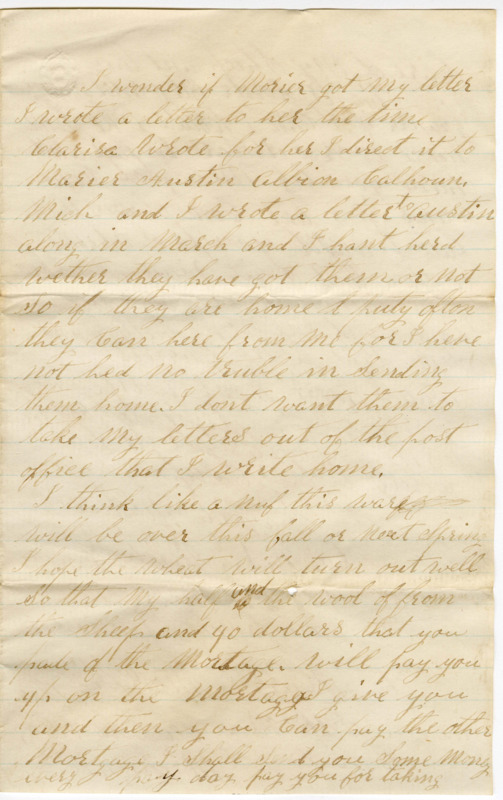 I wonder if Morier got my letter
I wrote a letter to her the time
Clarisa Wrote for her I direct it to
Marier Austin Albion Calhoun.
Mich and I wrote a letter to Austin
along in March and I hant herd
wether they have got them or not
so if they are home & puty often
they Can here from me for I heve
not hed no truble in Sending
them home. I dont want them to
take my letters out of the post
office that I write home.
I think like a nuf this war
will be over this fall or next Spring
I hope the wheat will turn out well
So that my half and the wool of from
the Sheep and 90 dollars that you
of the Mortage. will pay you
up on the Mortage I give you
and then you Can pay the other
Mortgage I shall send you Some Mony
every pay day pay you for taking